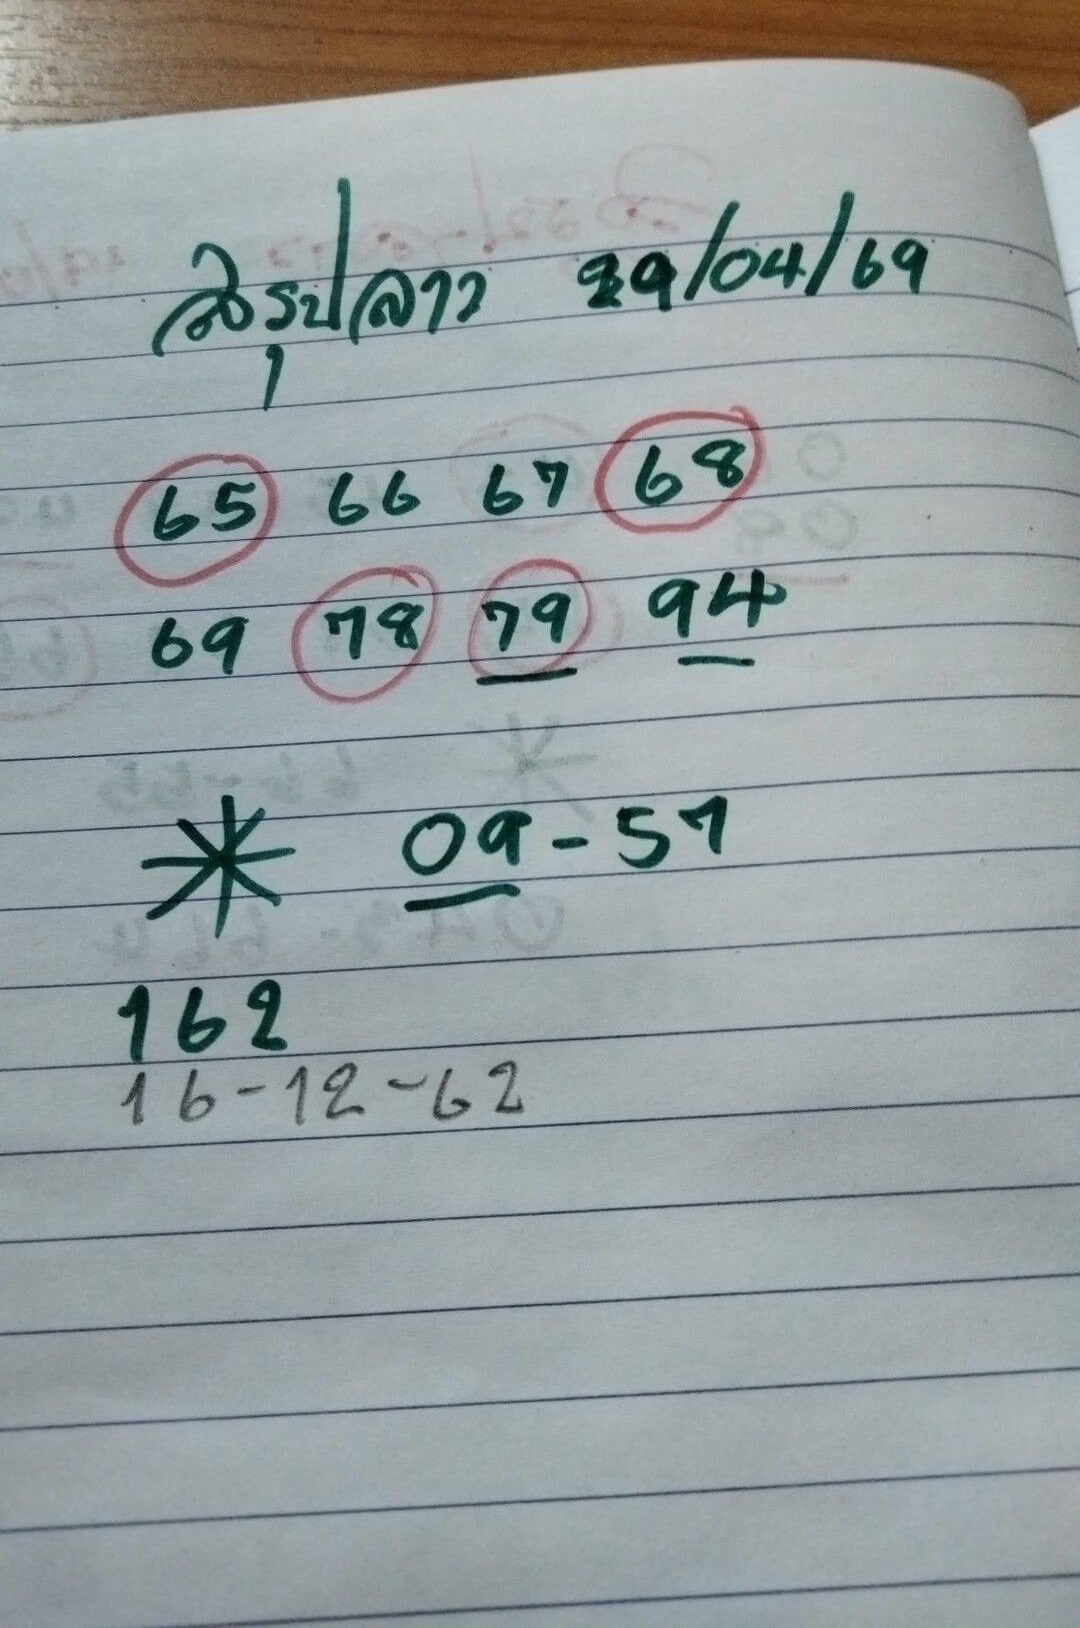 สรุปลาว 29/04/69
65 66 67 68
69 78 79 94
09-57
162
16-12-62